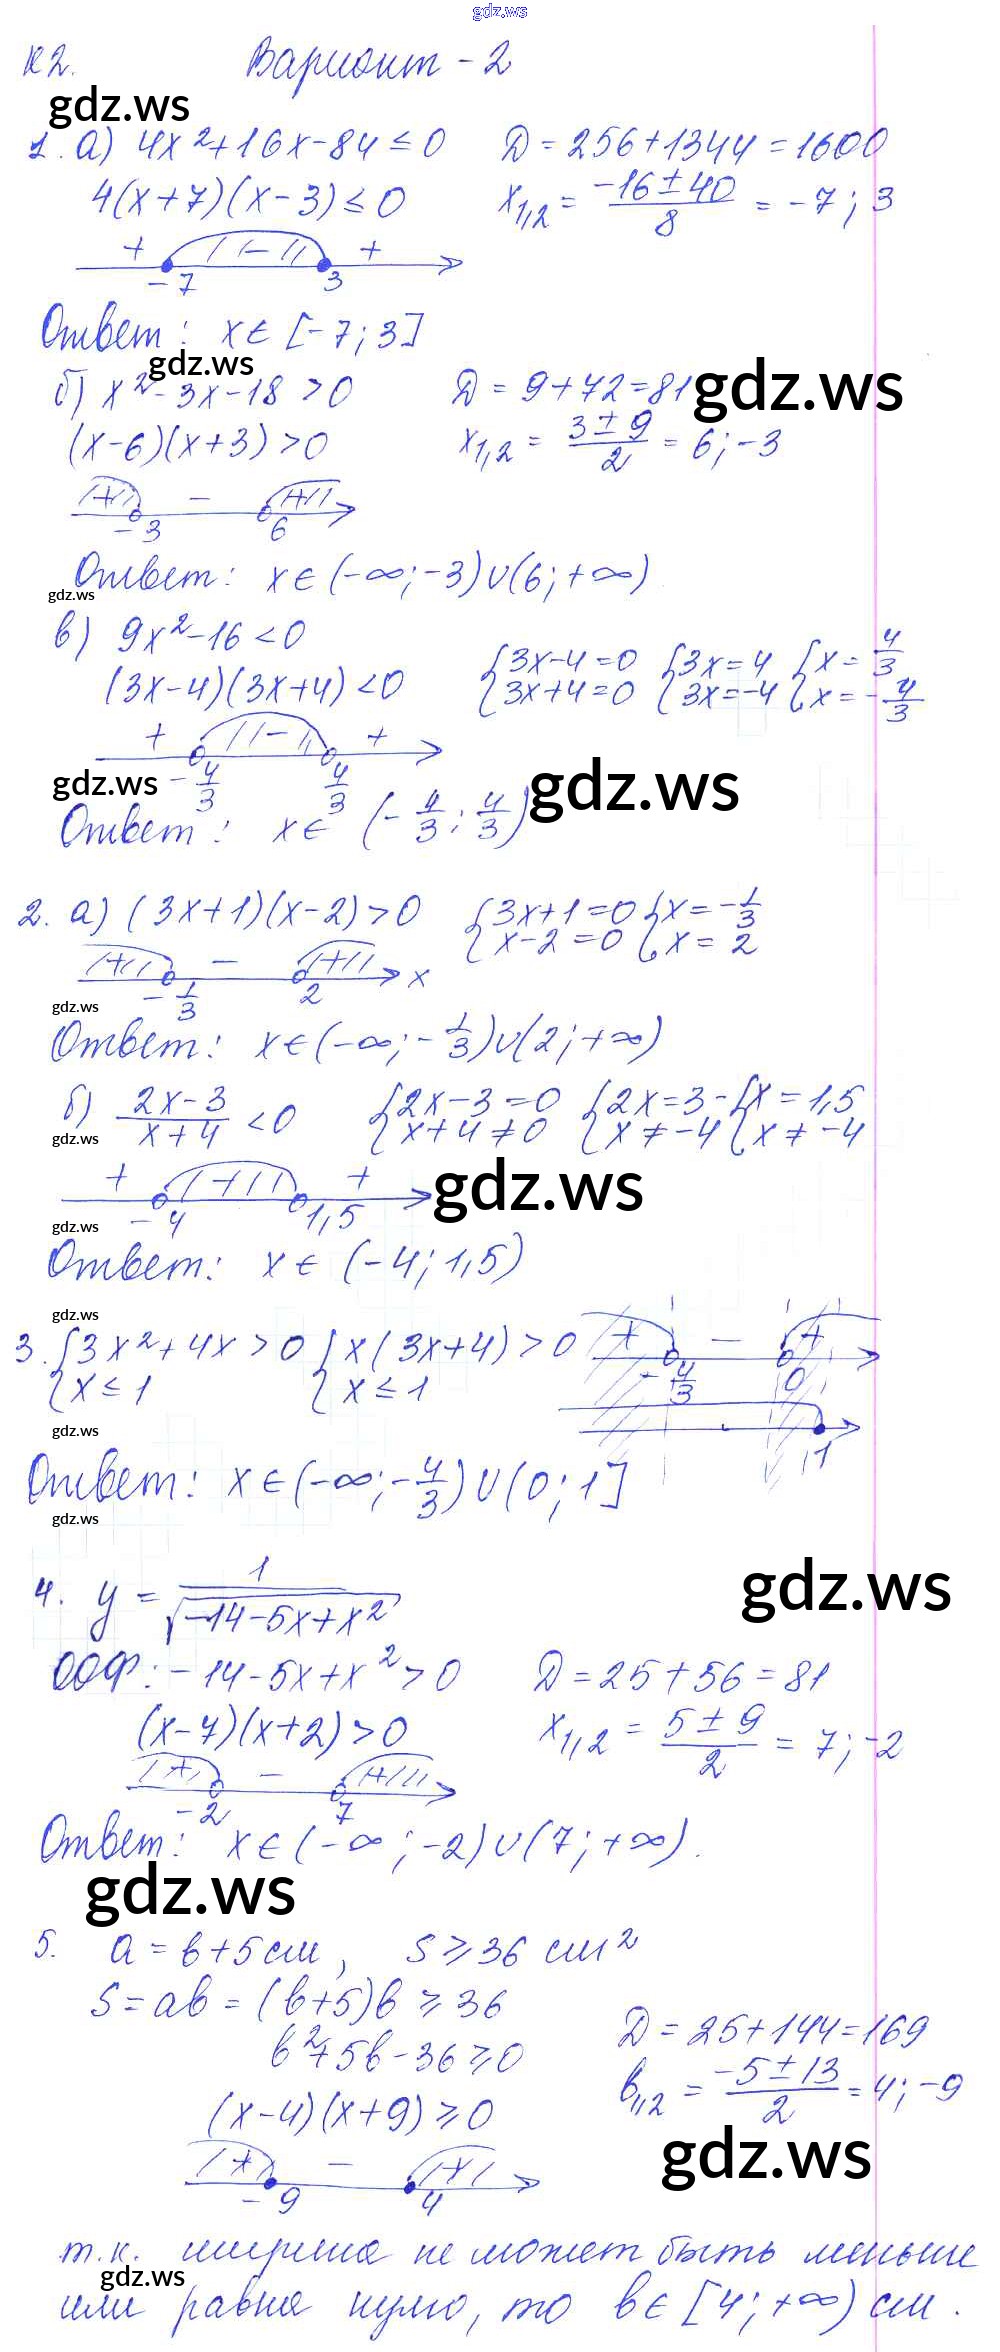 gdz.ws
К2. Вариант - 2
gdz.ws
1. а) 4x² + 16x - 84 ≤ 0 D = 256 + 1344 = 1600
4(x + 7)(x - 3) ≤ 0 x₁,₂ = (-16 ± 40)/8 = -7; 3
+ - +
-7 3
Ответ: x ∈ [-7; 3]
gdz.ws
б) x² - 3x - 18 > 0 D = 9 + 72 = 81
gdz.ws
(x - 6)(x + 3) > 0 x₁,₂ = (3 ± 9)/2 = 6; -3
+ - +
-3 6
Ответ: x ∈ (-∞; -3) ∪ (6; +∞)
gdz.ws
в) 9x² - 16 < 0
(3x - 4)(3x + 4) < 0 {3x - 4 = 0 {3x = 4 {x = 4/3
{3x + 4 = 0 {3x = -4 {x = -4/3
+ - +
-4/3 4/3
gdz.ws gdz.ws
Ответ: x ∈ (-4/3; 4/3)
2. а) (3x + 1)(x - 2) > 0 {3x + 1 = 0 {x = -1/3
{x - 2 = 0 {x = 2
+ - + x
-1/3 2
gdz.ws
Ответ: x ∈ (-∞; -1/3) ∪ (2; +∞)
б) (2x - 3)/(x + 4) < 0 {2x - 3 = 0 {2x = 3 - {x = 1,5
{x + 4 ≠ 0 {x ≠ -4 {x ≠ -4
gdz.ws
+ + +
-4 1,5
gdz.ws
gdz.ws
Ответ: x ∈ (-4; 1,5)
gdz.ws
3. {3x² + 4x > 0 {x(3x + 4) > 0 + - +
{x ≤ 1 {x ≤ 1 -4/3 0
gdz.ws
1
Ответ: x ∈ (-∞; -4/3) ∪ (0; 1]
gdz.ws
4. y = 1/√(-14 - 5x + x²)
gdz.ws
ООФ: -14 - 5x + x² > 0 D = 25 + 56 = 81
(x - 7)(x + 2) > 0 x₁,₂ = (5 ± 9)/2 = 7; -2
+ - +
-2 7
Ответ: x ∈ (-∞; -2) ∪ (7; +∞).
gdz.ws
5. a = b + 5 см, S ≥ 36 см²
S = ab = (b + 5)b ≥ 36
b² + 5b - 36 ≥ 0 D = 25 + 144 = 169
(x - 4)(x + 9) ≥ 0 b₁,₂ = (-5 ± 13)/2 = 4; -9
gdz.ws
+ - +
-9 4
т.к. ширина не может быть меньше
gdz.ws
или равна нулю, то b ∈ [4; +∞) см.